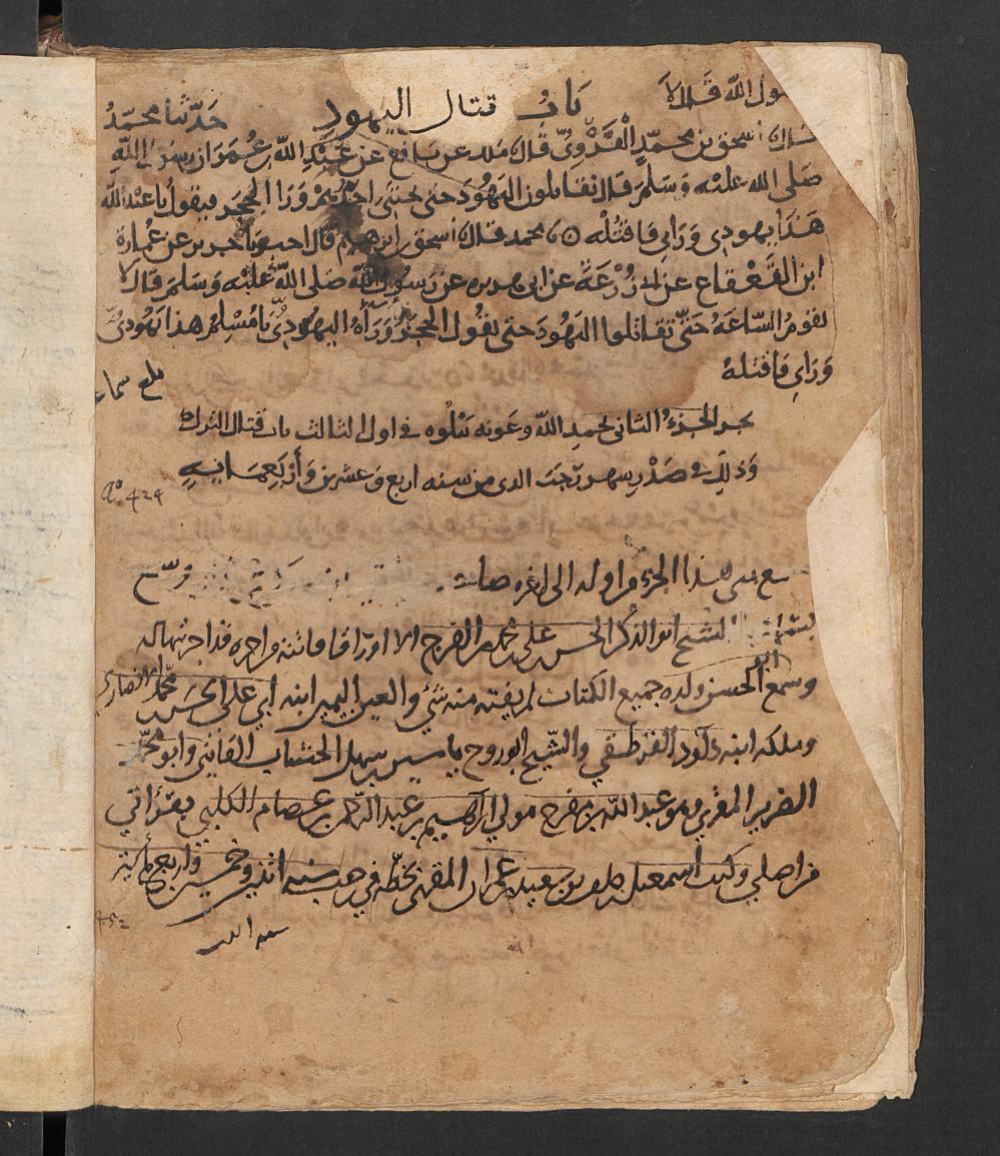 ول الله قال لا
باب قتال اليهود حدثنا محمد
اسحق بن محمد الفروي قال ملك عن نافع عن عبد الله بن عمر ان رسول الله
صلى الله عليه وسلم قال تقاتلون اليهود حتى يختبى احدكم ورا الحجر فيقول يا عبد الله
هذا يهودي وراي فاقتله محمد قال اسحق بن ابرهيم قال اخبرنا جرير عن عمارة
ابن القعقاع عن ابي زرعة عن ابي هريره عن رسول الله صلى الله عليه وسلم قال لا
تقوم الساعة حتى تقاتلوا اليهود حتى يقول الحجر وراه اليهودي يا مسلم هذا يهودي
وراي فاقتله
بلغ سماعا
نجز الجزء الثاني بحمد الله وعونه يتلوه في اول الثالث باب قتال الترك
وذلك في صدر شهر رجب الذي من سنه اربع وعشرين وأربعمائة
ao 424
سمع مني هذا الجزء من اوله الى اخره
الشيخ ابو الذكر الحسن بن علي بن محمد بن الفرج الا اوراقا فاتته من اخره قد اجزتها له
وسمع ابو الحسن ولده جميع الكتاب لم يفته منه شي وابو العين اليمين ابنه ابي علي الحسن بن محمد الانصاري
وملكه ابنه داود القرطبي والشيخ ابو روح ياسين بن سهل الخشاب القايني وابو محمد
الضرير المقري وهو عبد الله بن مفرج مولى ابراهيم بن عبد الرحمن بن عصام الكلبي بقراتي
من اصلي وكتب اسمعيل بن خلف بن سعيد بن عمران المقري بخطه في رجب سنه اثنين وخمسين واربع مائة
45